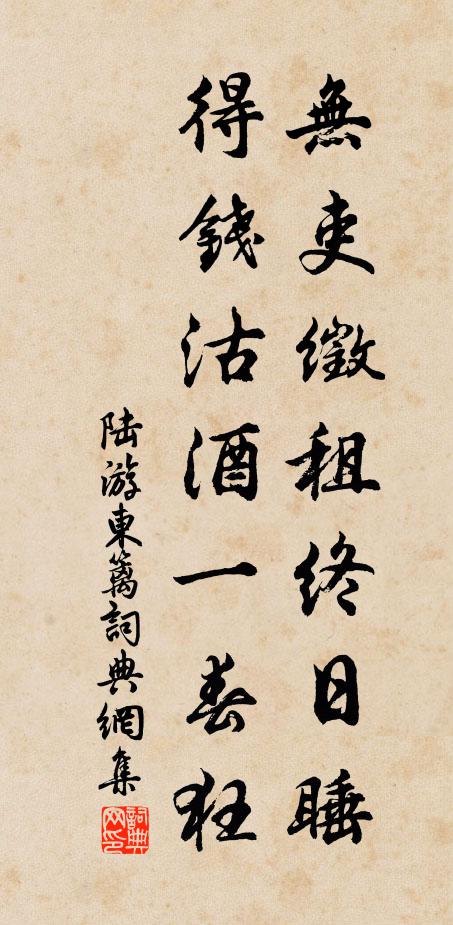 無吏徵租終日睡
得錢沽酒一春狂
陆游東籬詞典網集
詞典网印